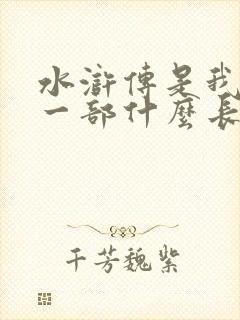 水滸傳是我
一部什麼長
千芳魏紫